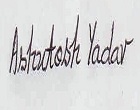 Ashutosh Yadav